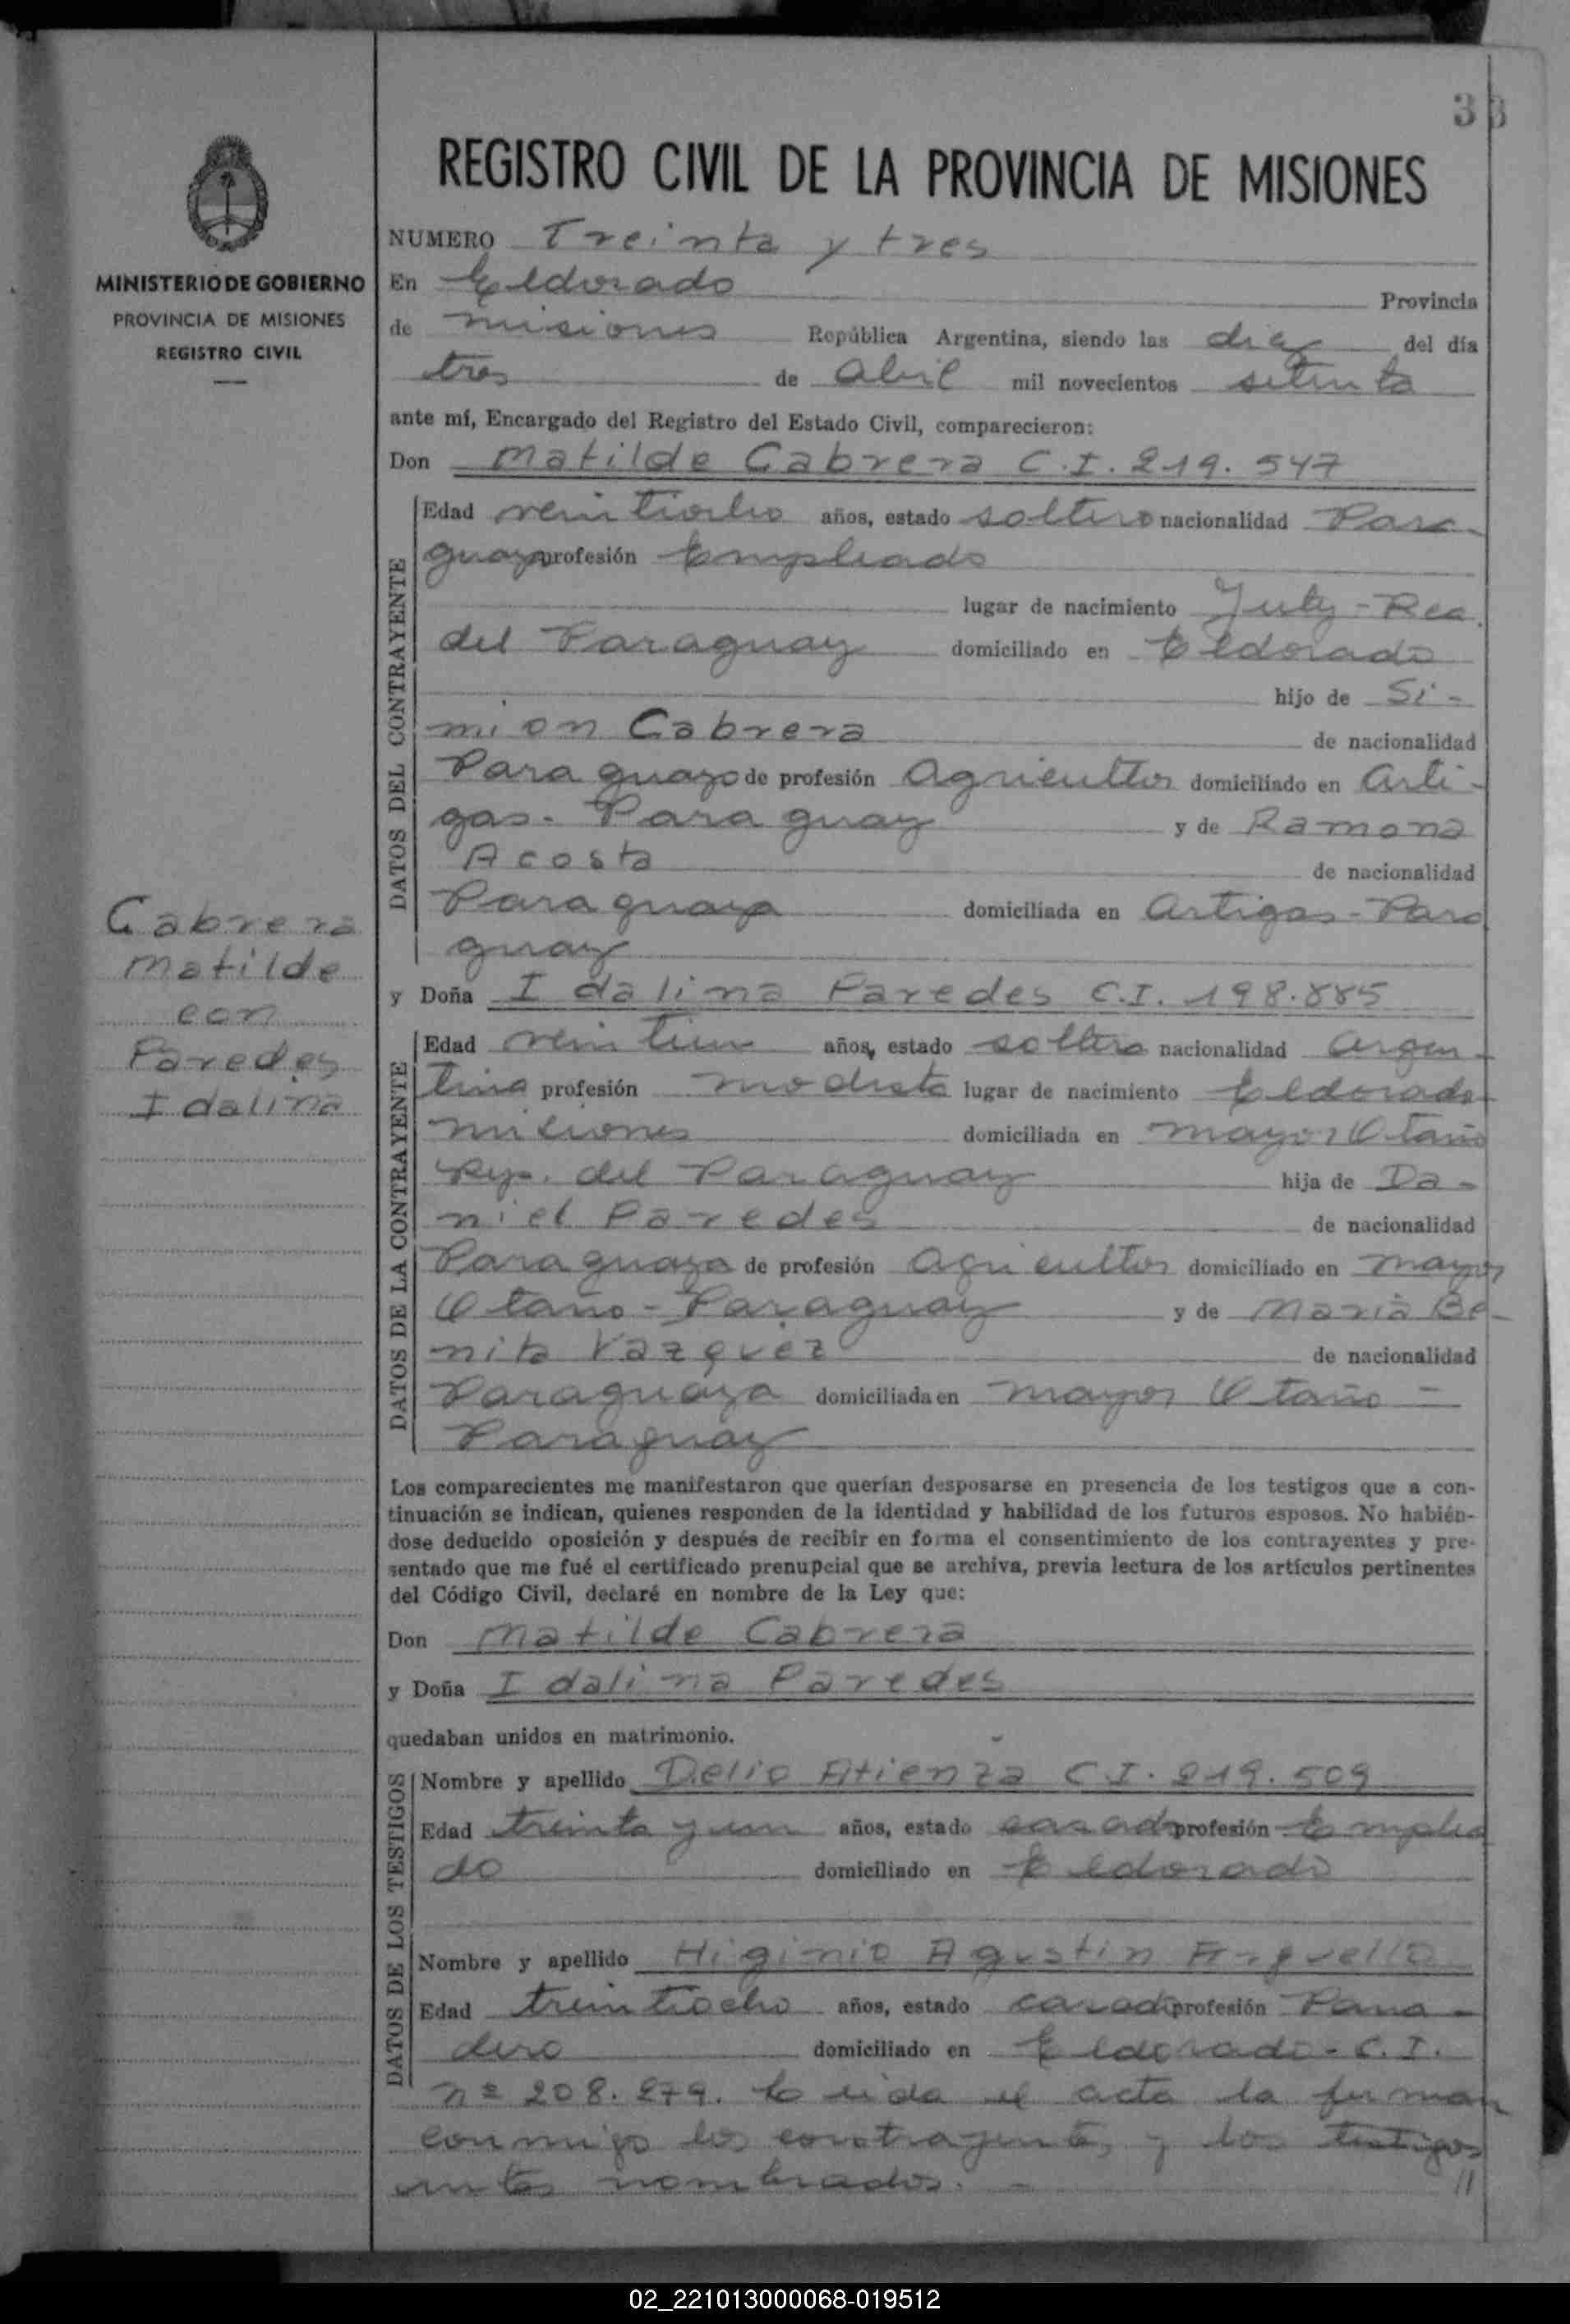 33
REGISTRO CIVIL DE LA PROVINCIA DE MISIONES
MINISTERIO DE GOBIERNO
PROVINCIA DE MISIONES
REGISTRO CIVIL
NUMERO Treinta y tres
En Eldorado Provincia
de misiones República Argentina, siendo las diez del día
tres de Abril mil novecientos setenta
ante mí, Encargado del Registro del Estado Civil, comparecieron:
Don Matilde Cabrera C.I. 219.547
DATOS DEL CONTRAYENTE
Edad veintiocho años, estado soltero nacionalidad Para-
guaya profesión Empleado
lugar de nacimiento Yuty - Rca.
del Paraguay domiciliado en Eldorado
hijo de Si-
mion Cabrera de nacionalidad
Paraguayo de profesión Agricultor domiciliado en Arti-
gas - Paraguay y de Ramona
Acosta de nacionalidad
Paraguaya domiciliada en Artigas - Para
guay
Cabrera
Matilde
con
Paredes
Idalina
y Doña Idalina Paredes C.I. 198.885
DATOS DE LA CONTRAYENTE
Edad veintiun años, estado soltera nacionalidad Argen-
tina profesión modista lugar de nacimiento Eldorado
misiones domiciliada en mayor Otaño
Rep. del Paraguay hija de Da-
niel Paredes de nacionalidad
Paraguaya de profesión Agricultor domiciliado en mayor
Otaño - Paraguay y de Maria Be-
nita Vazquez de nacionalidad
Paraguaya domiciliada en mayor Otaño -
Paraguay
Los comparecientes me manifestaron que querían desposarse en presencia de los testigos que a con-
tinuación se indican, quienes responden de la identidad y habilidad de los futuros esposos. No habién-
dose deducido oposición y después de recibir en forma el consentimiento de los contrayentes y pre-
sentado que me fué el certificado prenupcial que se archiva, previa lectura de los artículos pertinentes
del Código Civil, declaré en nombre de la Ley que:
Don Matilde Cabrera
y Doña Idalina Paredes
quedaban unidos en matrimonio.
DATOS DE LOS TESTIGOS
Nombre y apellido Delio Atienza C.I. 219.509
Edad treinta y un años, estado casado profesión Emplea
do domiciliado en Eldorado
Nombre y apellido Higinio Agustin Arguello
Edad treintiocho años, estado casado profesión Pana-
dero domiciliado en Eldorado - C.I.
nº 208.279. Leida el acta la firman
conmigo los contrayentes y los testigos
antes nombrados. - //
02_221013000068-019512